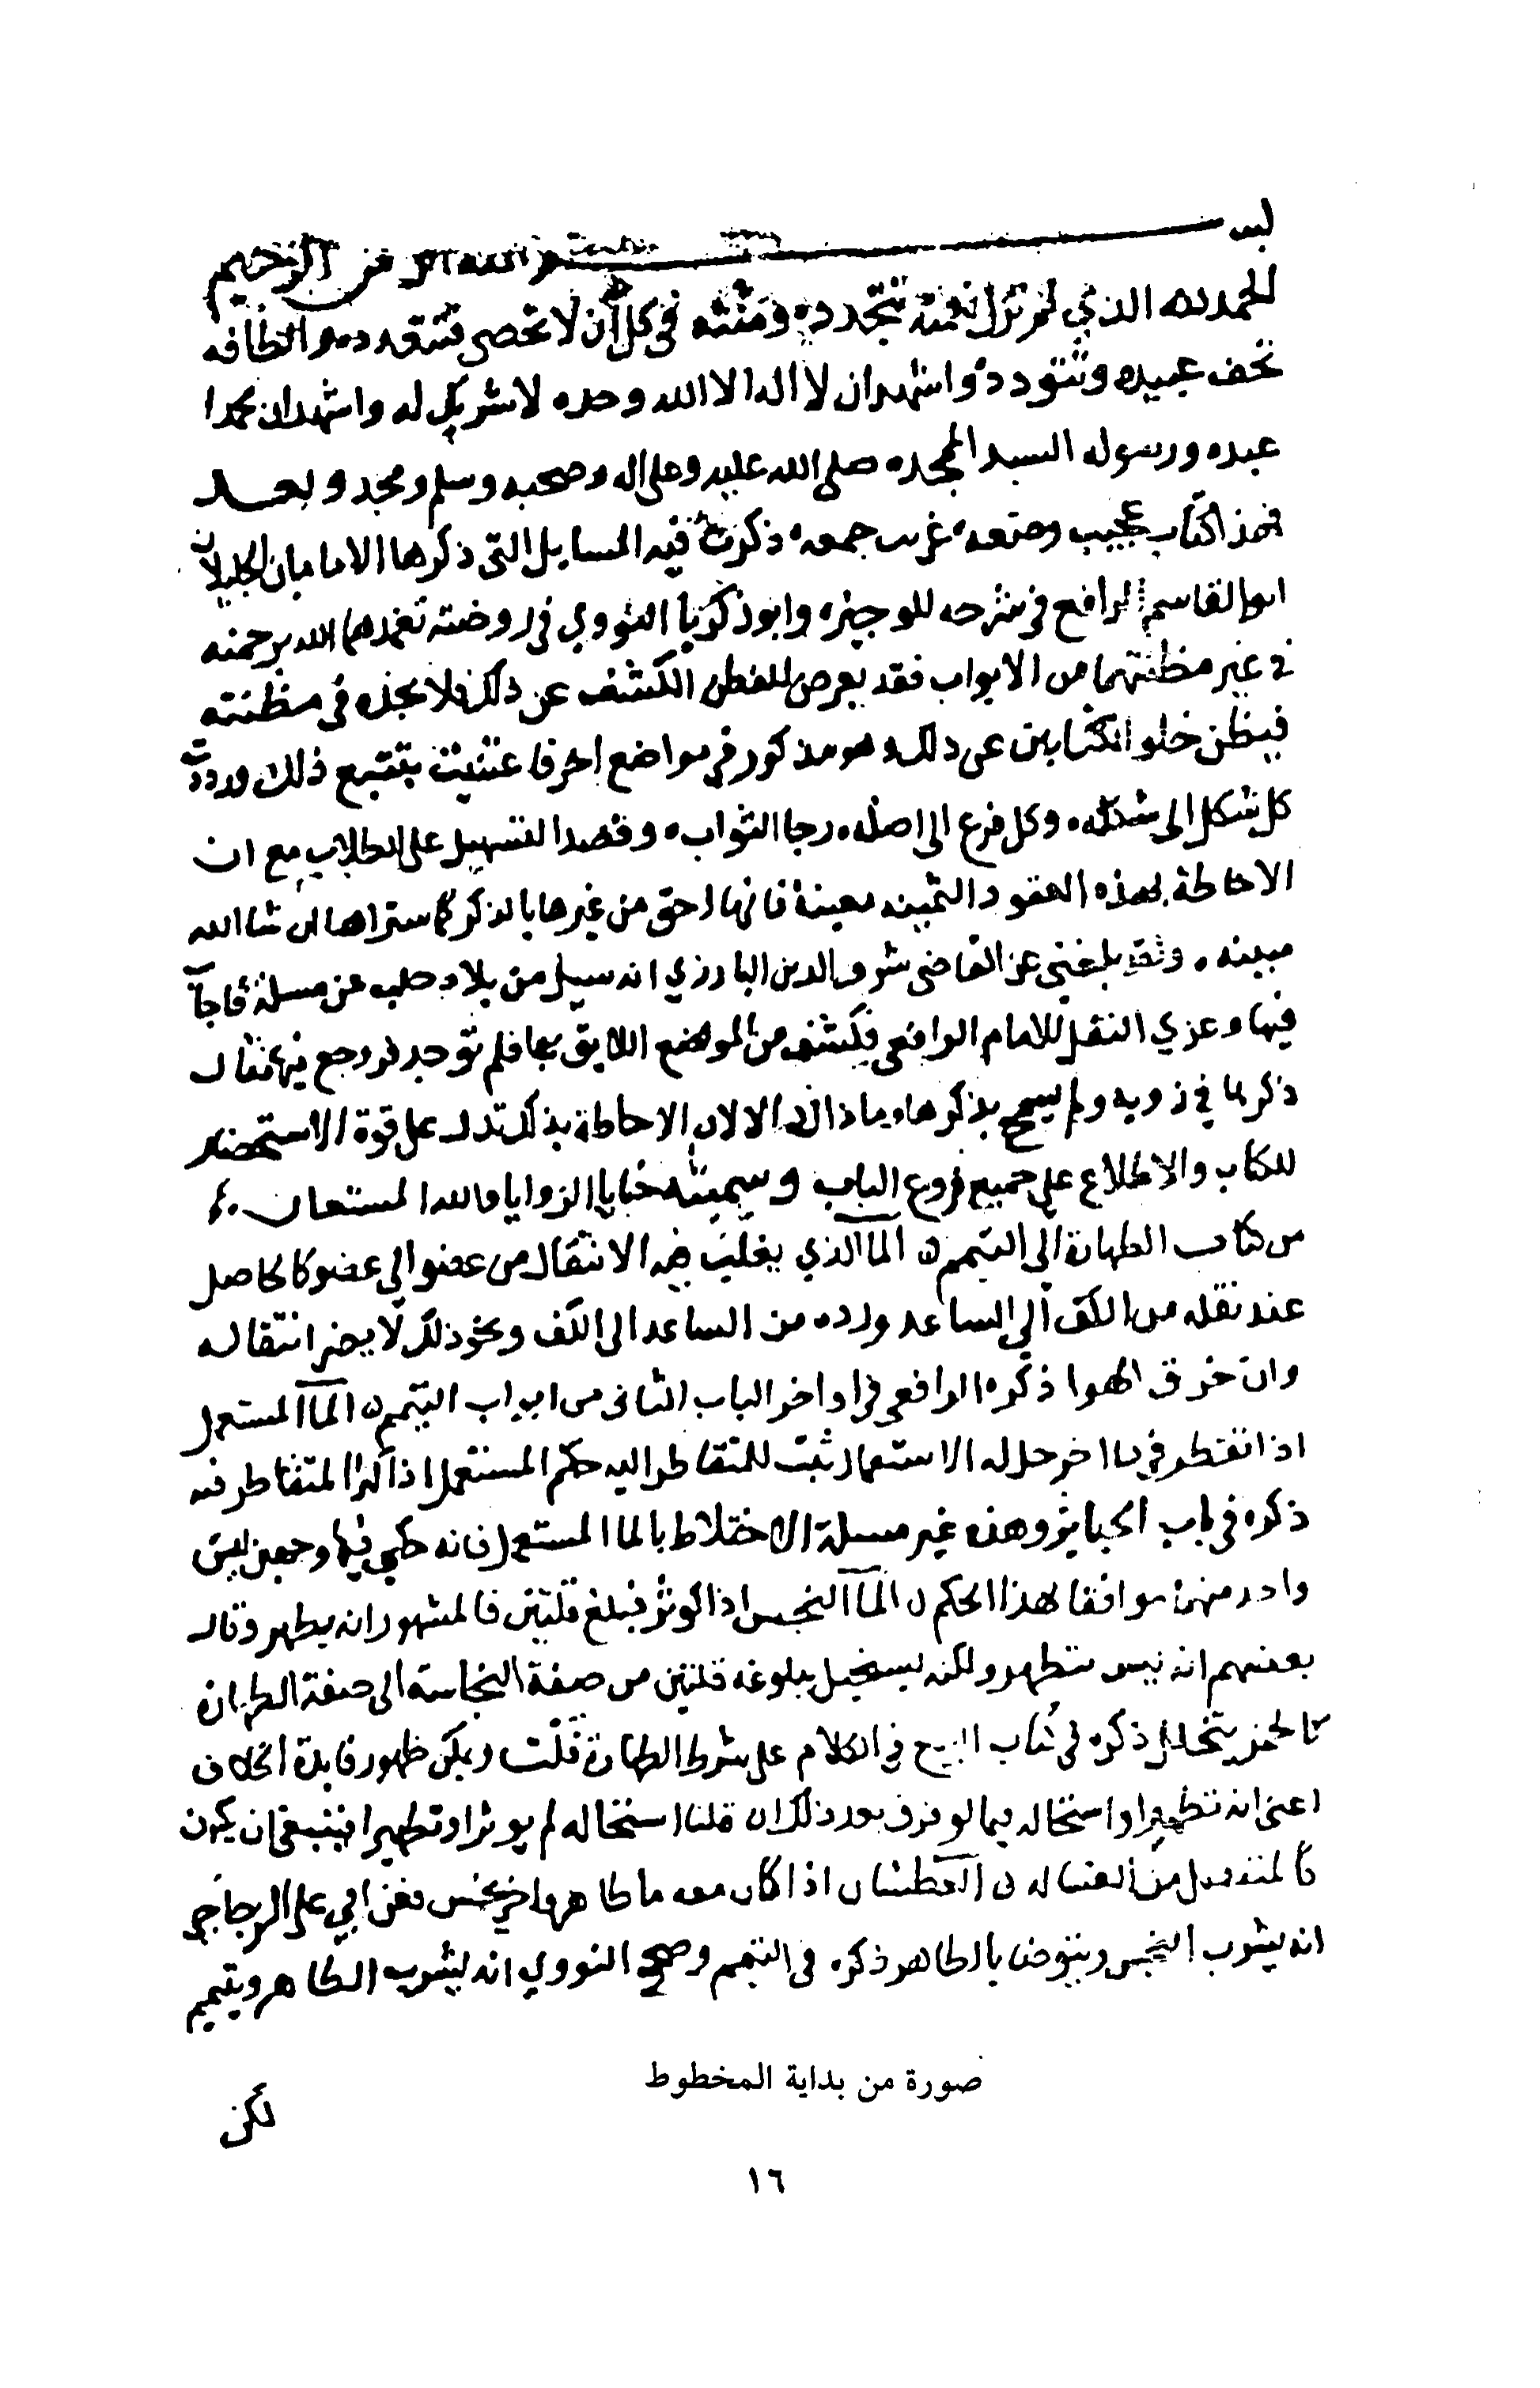 بسم الله الرحمن الرحيم
الحمد لله الذي لم تزل نعمته تتجدد ومنته في كل آن لا تحصى فتتعدد والطافه
تحف عبيده وتتودد واشهد ان لا اله الا الله وحده لا شريك له واشهد ان محمدا
عبده ورسوله السيد الممجد صلى الله عليه وعلى اله وصحبه وسلم ومجد وبعد
فهذا كتاب عجيب وضعه غريب جمعه ذكرت فيه المسايل التي ذكرها الامامان الجليلان
ابو القاسم الرافعي في شرحه للوجيز وابو زكريا النووي في روضته تغمدهما الله برحمته
في غير مظنتهما من الابواب فقد يعرض للفطن الكشف عن ذلك فلا يجده في مظنته
فيظن خلو الكتابين عن ذلك وهو مذكور في مواضع اخر فاعتنيت بتتبع ذلك ورددت
كل شكل الى شكله وكل فرع الى اصله رجا الثواب وقصدا لتسهيل على الطلاب مع ان
الاحاطة بهذه العقود الثمينه معينة فانها احق من غيرها بالذكر كما ستراها ان شا الله
مبينه وقد بلغني عن القاضي شرف الدين البارزي انه سيل من بلاد حلب عن مسلة فاجاب
فيها وعزي النقل للامام الرافعي فكشف من الموضع اللايق بها فلم توجد فروجع فيها فقال
ذكرها في زاويه ولم يسمح بذكرها وما ذاك الا لان الاحاطة بذلك تدل على قوة الاستحضار
للكتاب والاطلاع على جميع فروع الباب وسميته خبايا الزوايا والله المستعان
من كتاب الطهارة الى التيمم الما الذي يغلب فيه الانتقال من عضو الى عضو كالحاصل
عند نقله من الكف الى الساعد ورده من الساعد الى الكف ونحو ذلك لا يضر انتقاله
وان خرق الهوا ذكره الرافعي في اواخر الباب الثاني من ابواب التيمم الما المستعمل
اذا تقطر في ما اخر حلله الاستعمال ثبت للمتقاطر اليه حكم المستعمل اذا كثر المتقاطر فيه
ذكره في باب الجنايز وهذه غير مسلة الاختلاط بالما المستعمل فانه حكي فيها وجهين ليس
واحد منهما موافقا لهذا الحكم الما النجس اذا كوثر فبلغ قلتين فالمشهور انه يطهر وقال
بعضهم انه ليس بتطهير ولكنه يستحيل ببلوغه قلتين من صفة النجاسة الى صفة الطهارة
كالخمر يتخلل ذكره في كتاب البيع في الكلام على شرط الطهارة قلت ويمكن ظهور فايدة الخلاف
اعني انه تطهير او استحاله فيما لو فرق بعد ذلك ان قلنا استحاله لم يوثر او تطهيرا فينبغي ان يكون
كالمنفصل من الغساله العطشان اذا كان معه ما طاهر واخر نجس فعن ابي علي الزجاجي
انه يشرب النجس ويتوضا بالطاهر ذكره في التيمم وصحح النووي انه يشرب الطاهر ويتيمم
صورة من بداية المخطوط
لكن
١٦